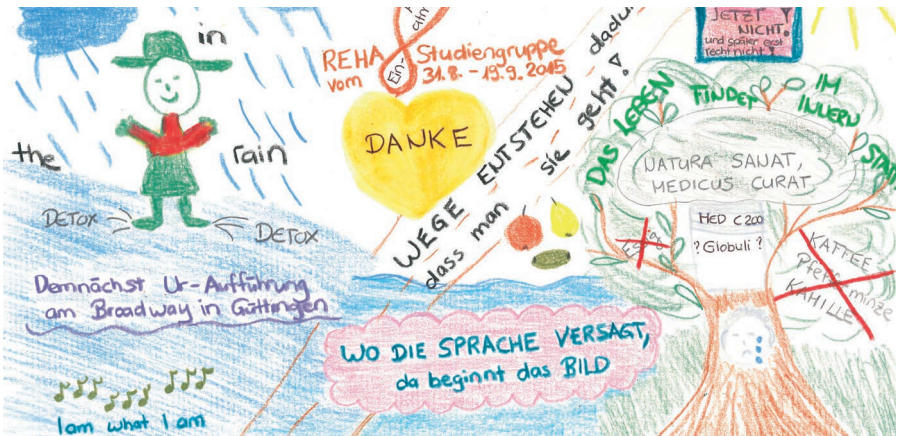 in
the
rain
DETOX
DETOX
Demnächst Ur-Aufführung
am Broadway in Göttingen
I am what I am
REHA
vom
Ein-
Studiengruppe
31.8. - 19.9. 2015
DANKE
WEGE ENTSTEHEN dadur
dass man sie geht!
WO DIE SPRACHE VERSAGT,
da beginnt das BILD
JETZT
NICHT!
und später erst
recht nicht!
DAS LEBEN FINDET IM
INNERN
STA
NATURA SANAT,
MEDICUS CURAT
MED C200
? Globuli ?
Essig
KAFFEE
Pfefferminze
KAMILLE